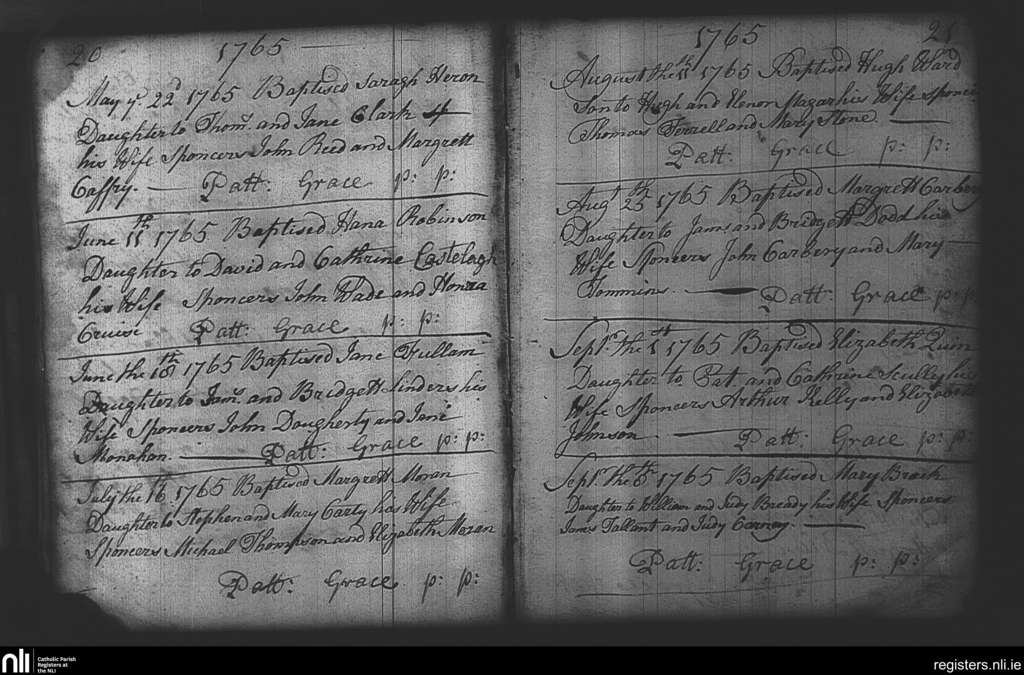 20
1765
May ye 22d 1765 Baptised Saragh Heron
Daughter to Thoms. and Jane Clark 4
his Wife Sponcers John Reed and Margrett
Caffry. — Patt: Grace p: p:
June 11th 1765 Baptised Hana Robinson
Daughter to David and Cathrine Castelogh
his Wife Sponcers John Wade and Honra
Cruise Patt: Grace p: p:
June the 18th 1765 Baptised Jane Fullam
Daughter to Jams. and Bridgett Linders his
Wife Sponcers John Daugherty and Jane
Monahan. — Patt: Grace p: p:
July the 16th 1765 Baptised Margrett Moran
Daughter to Stephen and Mary Carty his Wife
Sponcers Michael Thompson and Elizabeth Moran
Patt: Grace p: p:
1765
21
August the 11th 1765 Baptised Hugh Ward
Son to Hugh and Elenor Magar his Wife Sponce
Thomas Ferrell and Mary Stone. —
Patt: Grace p: p:
Aug 25th 1765 Baptised Margrett Carbery
Daughter to James and Bridgett Dodd his
Wife Sponcers John Carbery and Mary —
Tommins. — Patt: Grace p: p:
Septr. the 1st 1765 Baptised Elizabeth Quin
Daughter to Pat. and Cathrine Sculley his
Wife Sponcers Arthur Kelly and Elizabeth
Johnson — Patt: Grace p: p:
Sept. the 8th 1765 Baptised Mary Brack
Daughter to William and Judy Bready his Wife Sponcers
Jams. Tallant and Judy Carney. —
Patt: Grace p: p:
nli
Catholic Parish
Registers at
the NLI
registers.nli.ie